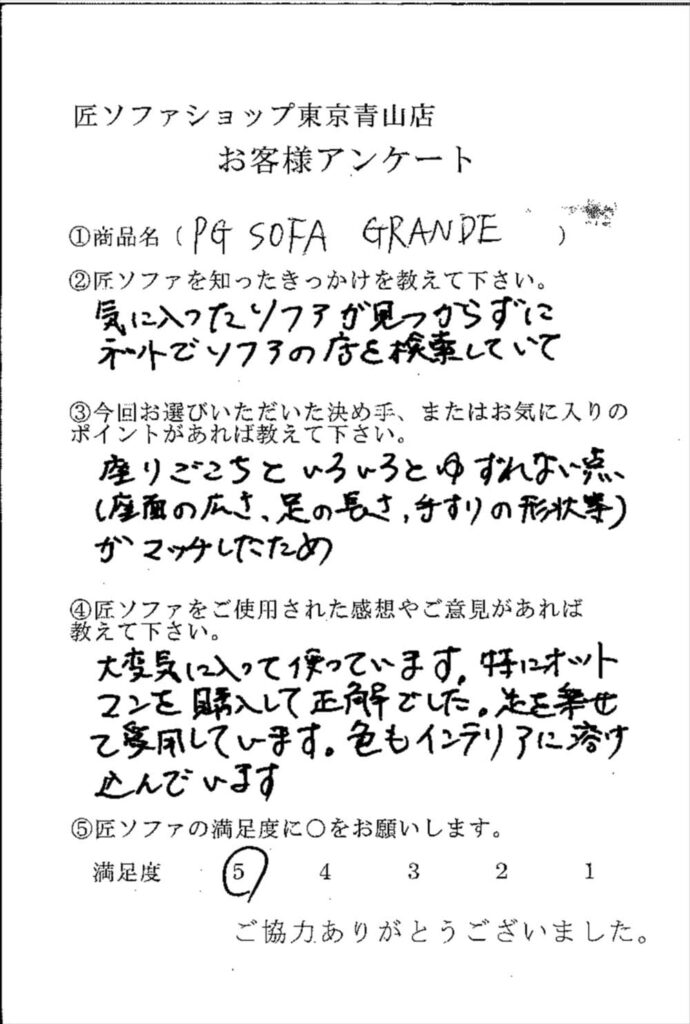 匠ソファショップ東京青山店
お客様アンケート
①商品名（PG SOFA GRANDE）
②匠ソファを知ったきっかけを教えて下さい。
気に入ったソファが見つからずに
ネットでソファの店を検索していて
③今回お選びいただいた決め手、またはお気に入りの
ポイントがあれば教えて下さい。
座りごこちといろいろとゆずれない点、
(座面の広さ、足の長さ、手すりの形状等)
がマッチしたため
④匠ソファをご使用された感想やご意見があれば
教えて下さい。
大変気に入って使っています。特にオット
マンを購入して正解でした。足を乗せ
て愛用しています。色もインテリアに溶け
込んでいます
⑤匠ソファの満足度に〇をお願いします。
満足度 5 4 3 2 1
ご協力ありがとうございました。